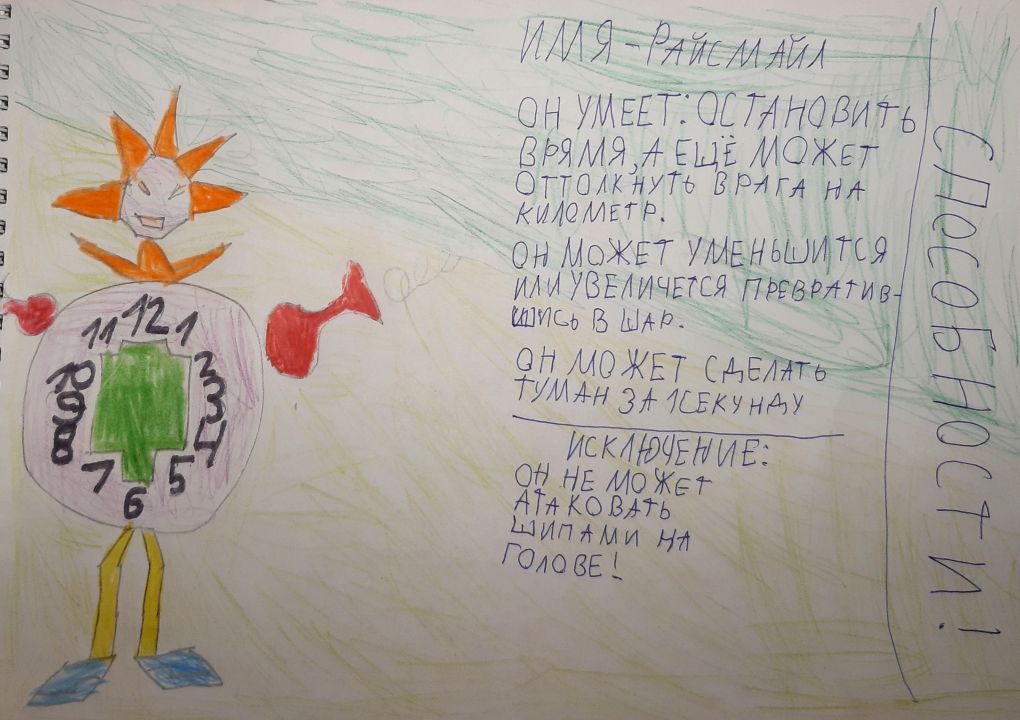 ИМЯ - РАЙСМАЙЛ
ОН УМЕЕТ: ОСТАНОВИТЬ
ВРЯМЯ, А ЕЩЁ МОЖЕТ
ОТТОЛКНУТЬ ВРАГА НА
КИЛОМЕТР.
ОН МОЖЕТ УМЕНЬШИТСЯ
ИЛИ УВЕЛИЧЕТСЯ ПРЕВРАТИВ-
ШИСЬ В ШАР.
ОН МОЖЕТ СДЕЛАТЬ
ТУМАН ЗА 1СЕКУНДУ
ИСКЛЮЧЕНИЕ:
ОН НЕ МОЖЕТ
АТАКОВАТЬ
ШИПАМИ НА
ГОЛОВЕ!
СПОСОБНОСТИ!
12
1
2
3
4
5
6
7
8
9
10
11